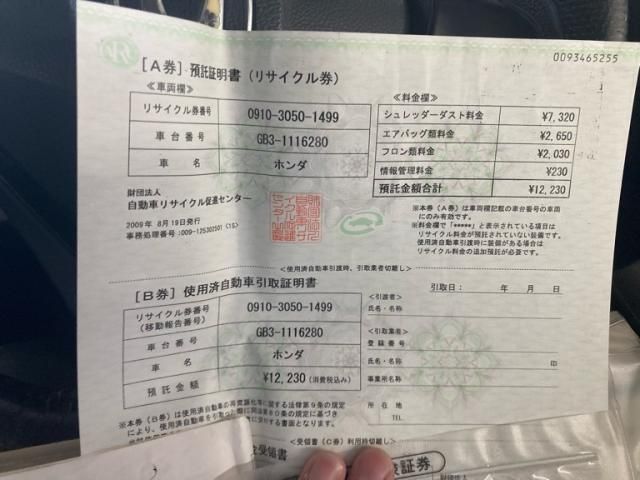 R
0093465255
[A券] 預託証明書(リサイクル券)
≪車両欄≫
リサイクル券番号 0910-3050-1499
車台番号 GB3-1116280
車名 ホンダ
≪料金欄≫
シュレッダーダスト料金 ¥7,320
エアバッグ類料金 ¥2,650
フロン類料金 ¥2,030
情報管理料金 ¥230
預託金額合計 ¥12,230
財団法人
自動車リサイクル促進センター
2009年 8月19日発行
※本券(A券)は車両欄記載の車台番号の車両
にのみ有効です。
※料金欄で「*****」と表示されている項目は
リサイクル料金が預託されていない装備です。
使用済自動車引渡時に装備がある場合は
リサイクル料金の追加預託が必要です。
<使用済自動車引渡時、引取業者切離し>
[B券] 使用済自動車引取証明書
引取日: 年 月 日
リサイクル券番号
(移動報告番号) 0910-3050-1499
車台番号 GB3-1116280
車名 ホンダ
預託金額 ¥12,230 (消費税込み)
<引渡者>
氏名・名称
<引取業者>
登録番号
氏名・名称 印
事業所名
所在地
TEL
<受領書(C券)利用時切離し>